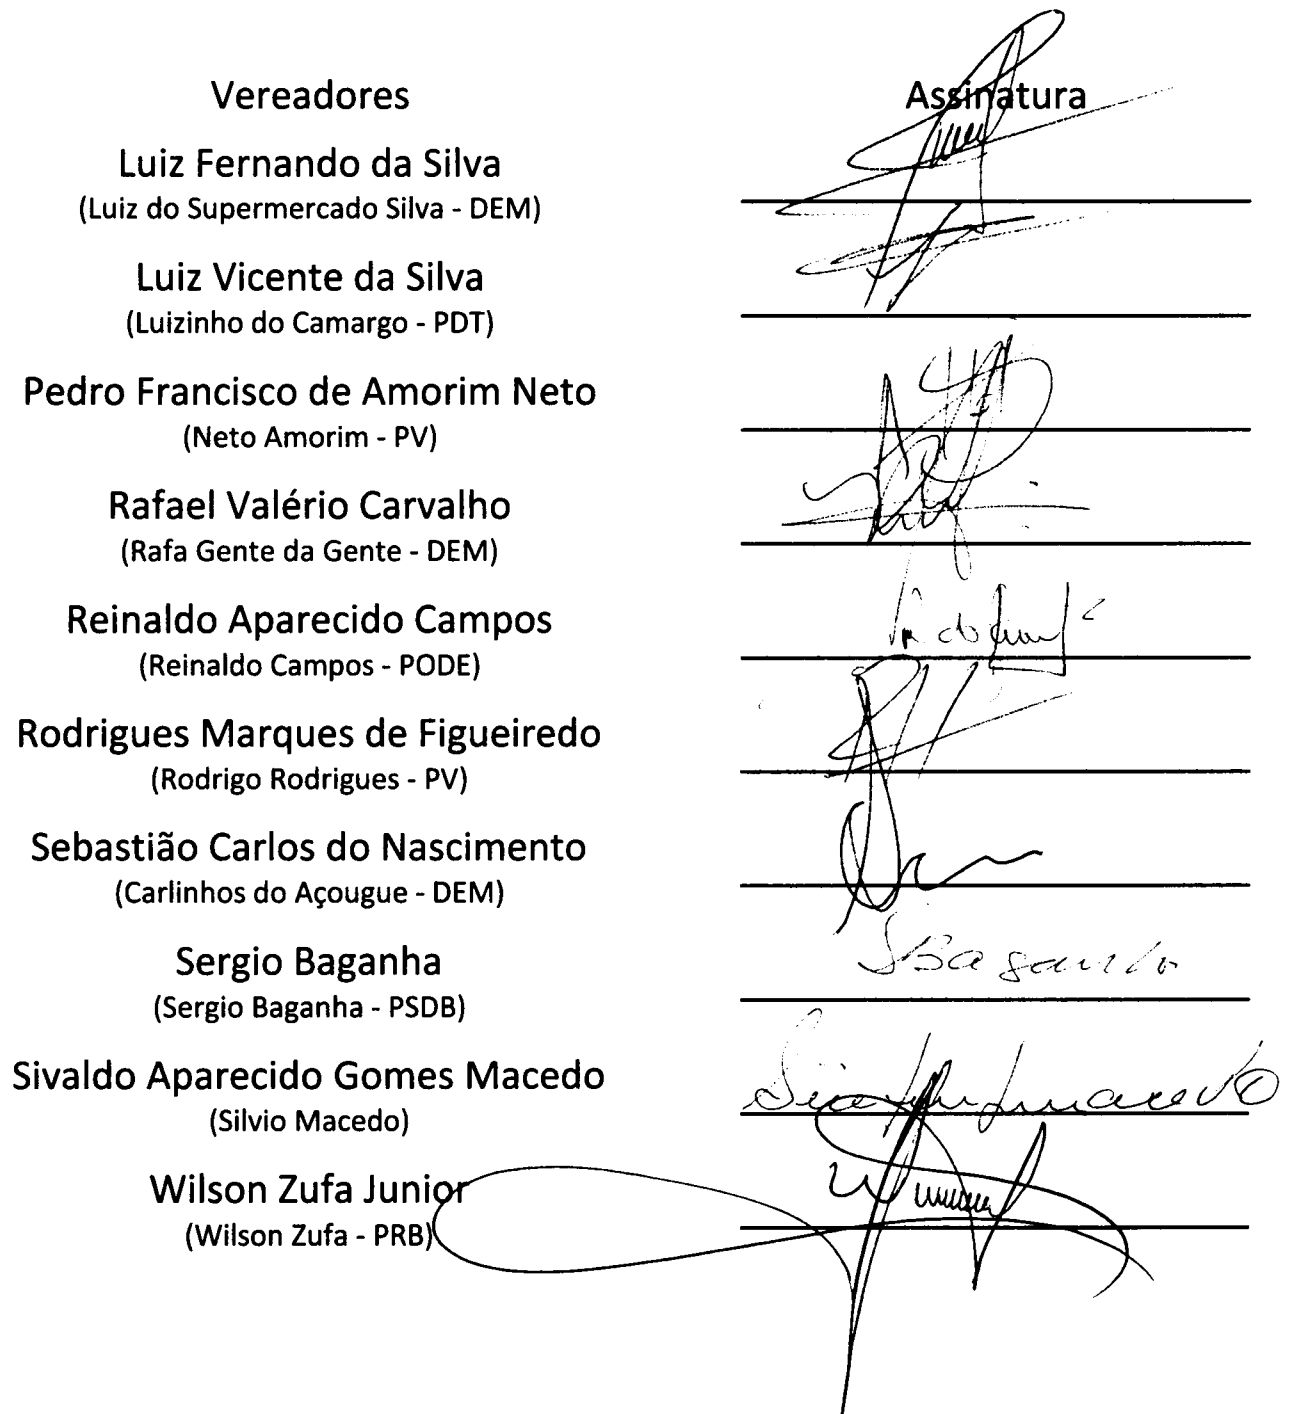 Vereadores Assinatura
Luiz Fernando da Silva
(Luiz do Supermercado Silva - DEM)
Luiz Vicente da Silva
(Luizinho do Camargo - PDT)
Pedro Francisco de Amorim Neto
(Neto Amorim - PV)
Rafael Valério Carvalho
(Rafa Gente da Gente - DEM)
Reinaldo Aparecido Campos
(Reinaldo Campos - PODE)
Rodrigues Marques de Figueiredo
(Rodrigo Rodrigues - PV)
Sebastião Carlos do Nascimento
(Carlinhos do Açougue - DEM)
Sergio Baganha
(Sergio Baganha - PSDB)
SBaganha
Sivaldo Aparecido Gomes Macedo
(Silvio Macedo)
Wilson Zufa Junior
(Wilson Zufa - PRB)